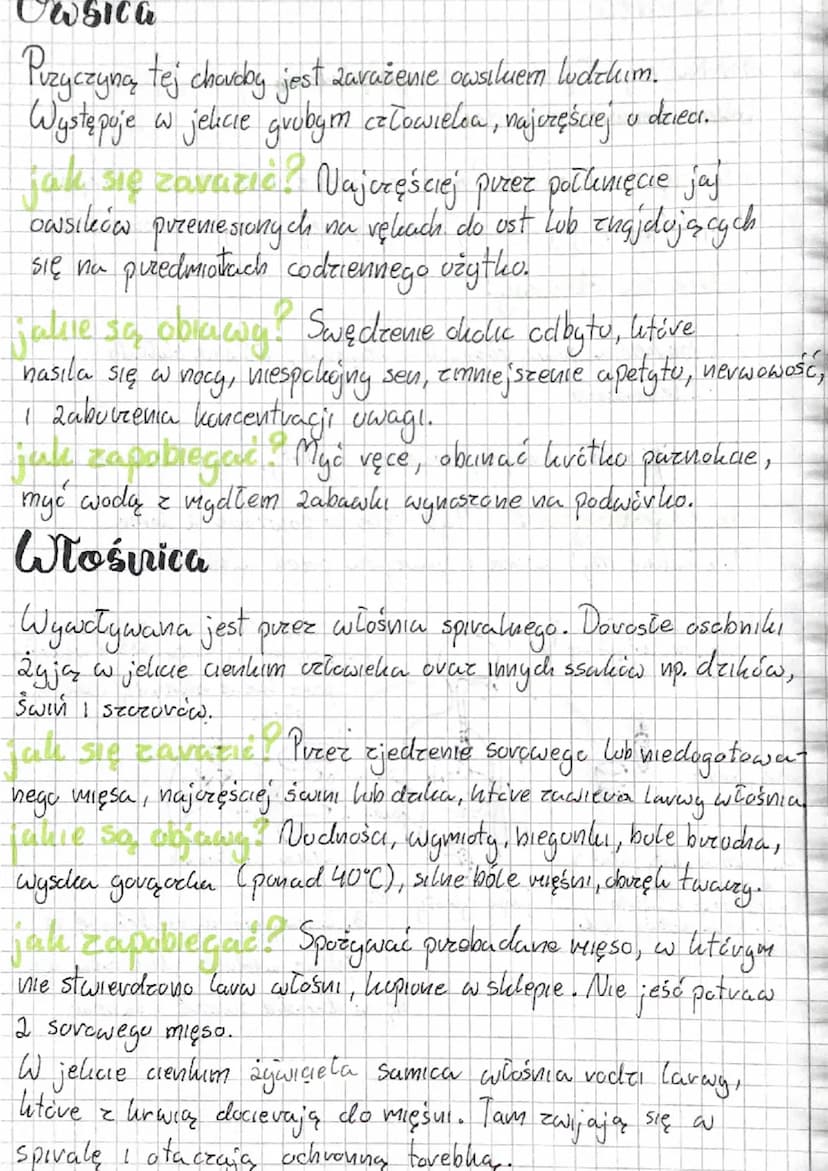 Owsica
Przyczyną tej choroby jest zarażenie owsikiem ludzkim.
Występuje w jelicie grubym człowieka, najczęściej u dzieci.
jak się zarazić? Najczęściej przez połknięcie jaj
owsików przeniesionych na rękach do ust lub znajdujących
się na przedmiotach codziennego użytku.
jakie są obiawy? Swędzenie okolic odbytu, które
nasila się w nocy, niespokojny sen, zmniejszenie apetytu, nerwowość,
i zaburzenia koncentracji uwagi.
jak zapobiegać? Myć ręce, obcinać krótko paznokcie,
myć wodą z mydłem zabawki wynoszone na podwórko.
Włośnica
Wywoływana jest przez włośnia spiralnego. Dorosłe osobniki
żyją w jelicie cienkim człowieka oraz innych ssaków np. dzików,
świń i szczurów.
jak się zarazić? Przez zjedzenie surowego lub niedogotowa-
nego mięsa, najczęściej świni lub dzika, które zawiera larwy włośnia
jakie są objawy? Nudności, wymioty, biegunki, bóle brzucha,
wysoka gorączka (ponad 40°C), silne bóle mięśni, obrzęk twarzy.
jak zapobiegać? Spożywać przebadane mięso, w którym
nie stwierdzono larw włośni, kupione w sklepie. Nie jeść potraw
z surowego mięso.
W jelicie cienkim żywiciela samica włośnia rodzi larwy,
które z krwią docierają do mięśni. Tam zwijają się w
spiralę i otaczają ochronną torebką.